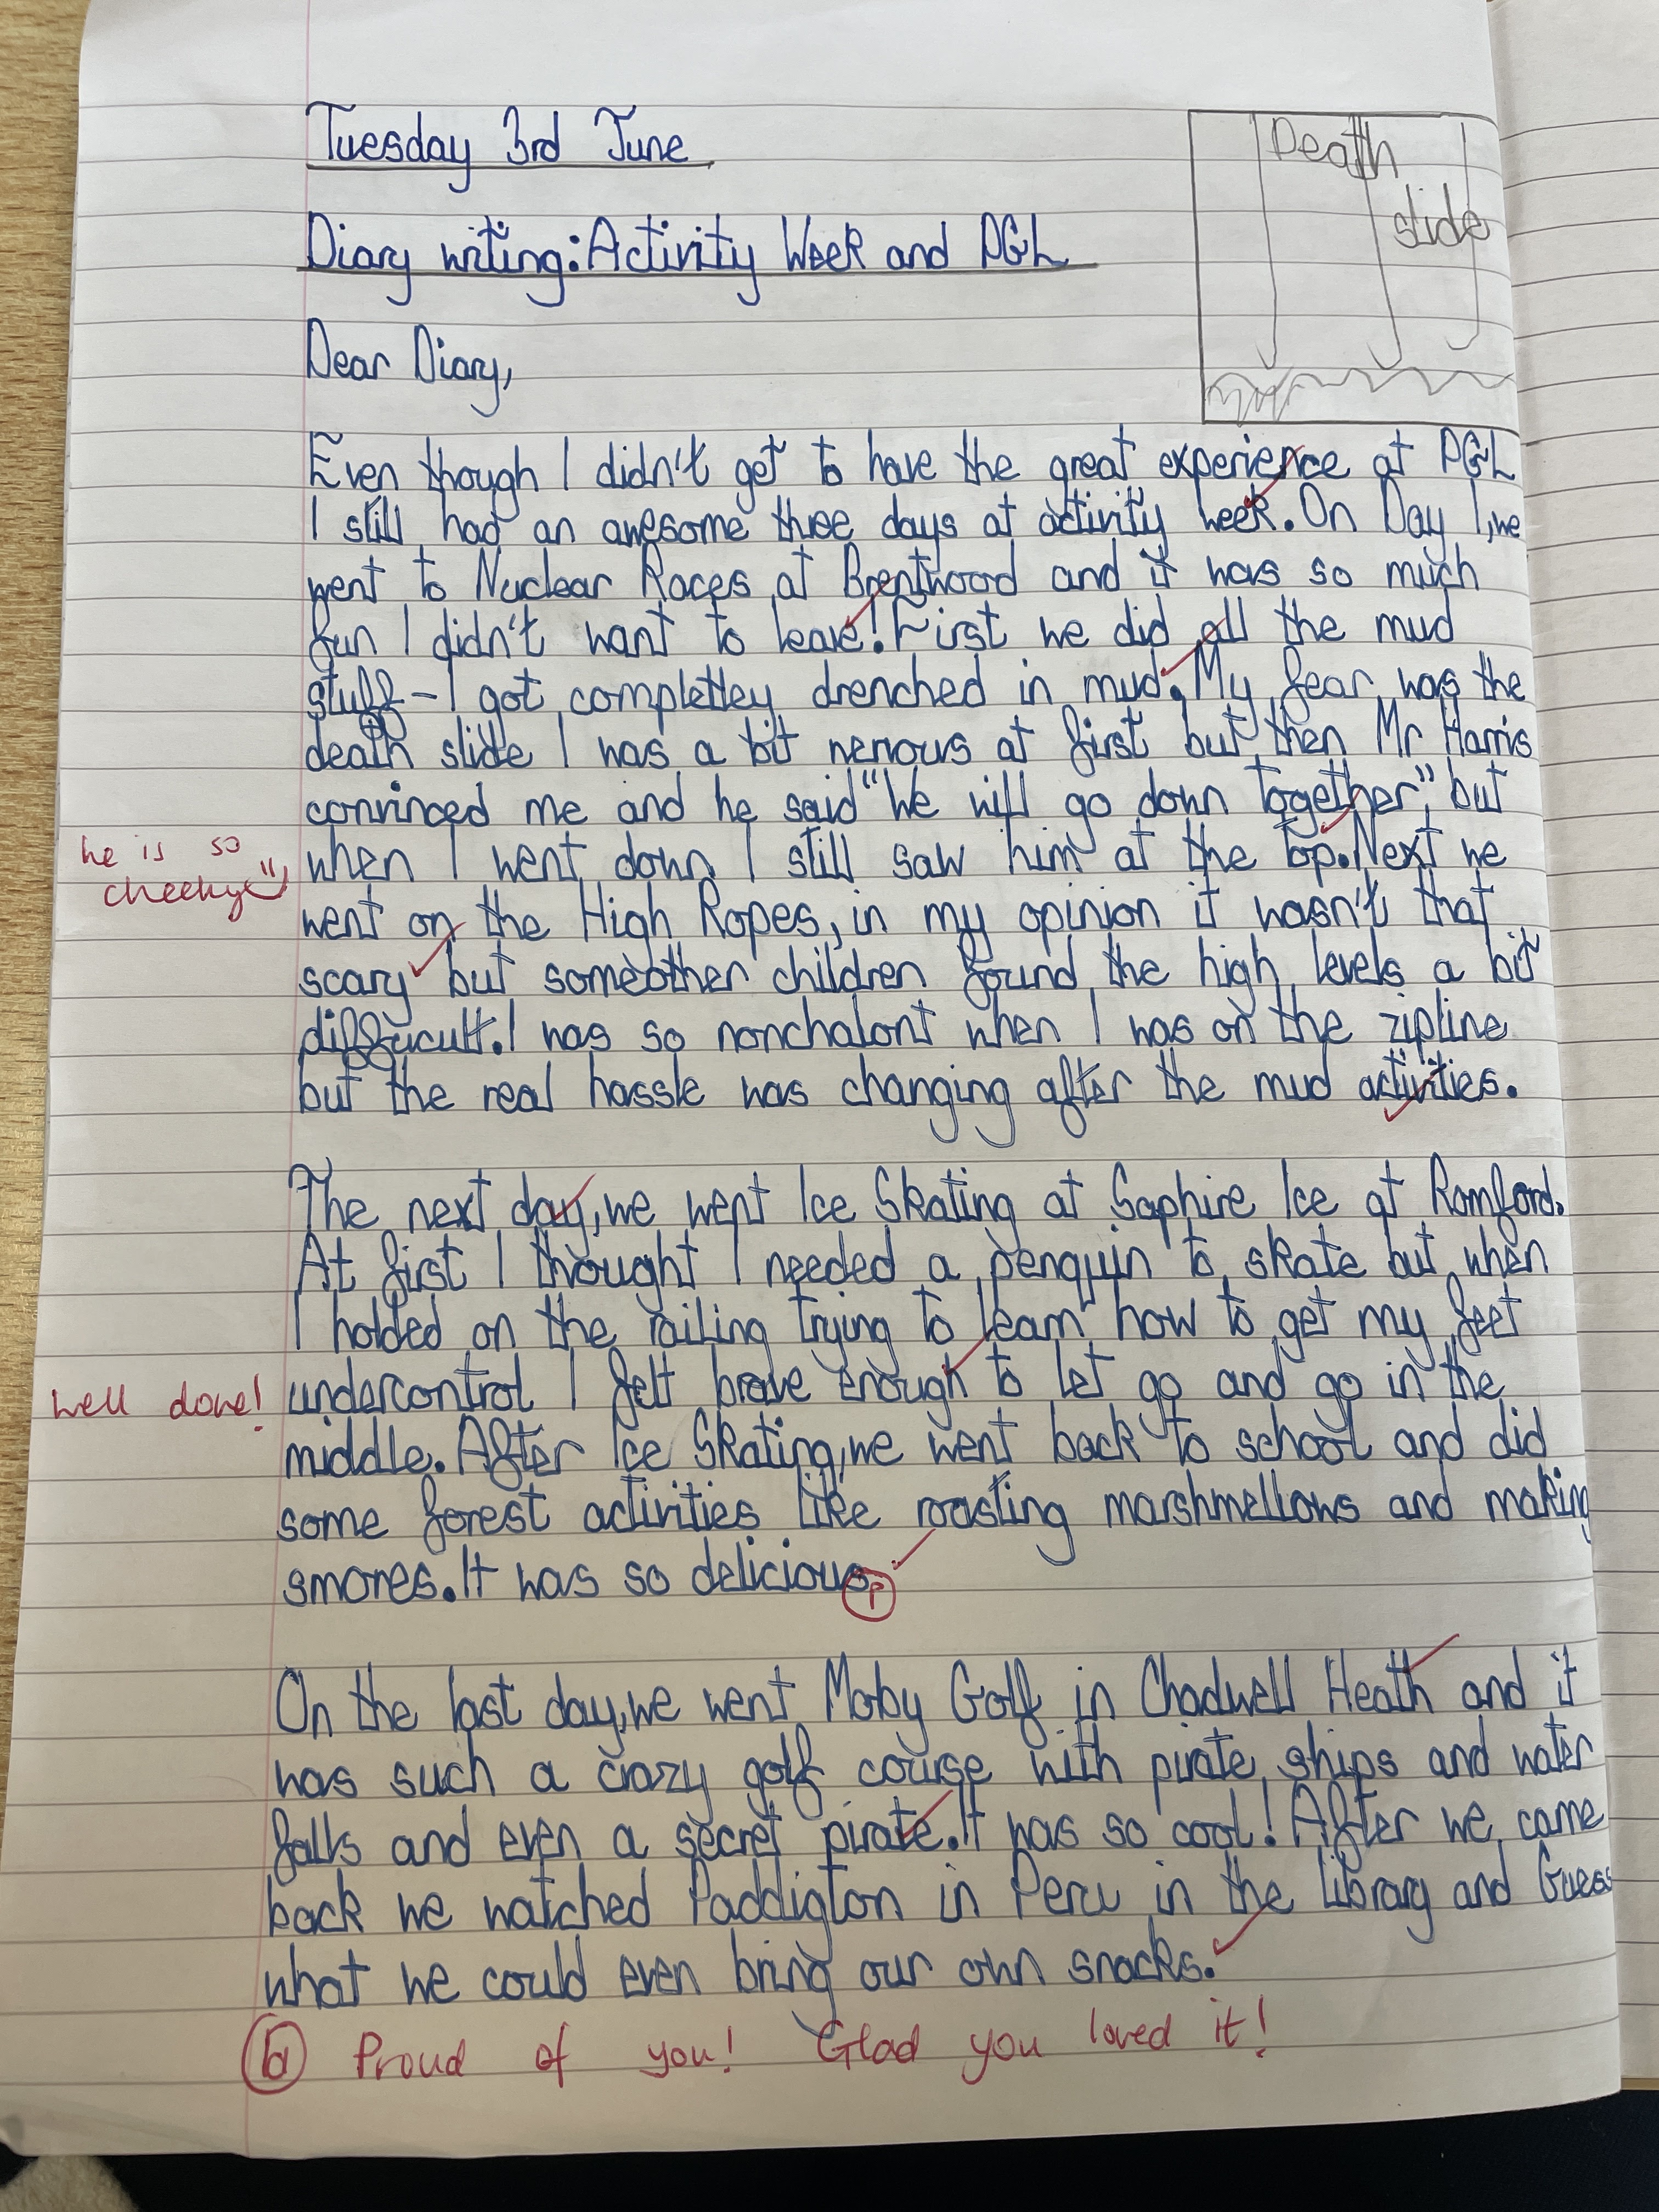 Tuesday 3rd June
Death
slide
Diary writing: Activity Week and PGL
Dear Diary,
Even though I didn't get to have the great experience at PGL
I still had an awesome three days at activity week. On Day 1, we
went to Nuclear Races at Brentwood and it was so much
fun I didn't want to leave! First we did all the mud
stuff - I got completley drenched in mud. My fear was the
death slide I was a bit nervous at first but then Mr Harris
convinced me and he said "We will go down together", but
he is so
when I went down I still saw him at the top. Next we
cheeky
went on the High Ropes, in my opinion it wasn't that
scary but some other children found the high levels a bit
difficult. I was so nonchalont when I was on the zipline
but the real hassle was changing after the mud activities.
The next day, we went Ice Skating at Saphire Ice at Romford.
At first I thought I needed a penguin to skate but when
I holded on the railing trying to learn how to get my feet
well done!
undercontrol I felt brave enough to let go and go in the
middle. After Ice Skating, we went back to school and did
some forest activities like roasting marshmellows and making
smores. It was so delicious.
P
On the last day, we went Moby Golf in Chadwell Heath and it
was such a crazy golf course with pirate ships and water
falls and even a secret pirate. It was so cool! After we came
back we watched Paddigton in Peru in the library and Guess
what we could even bring our own snacks.
Proud of you! Glad you loved it!